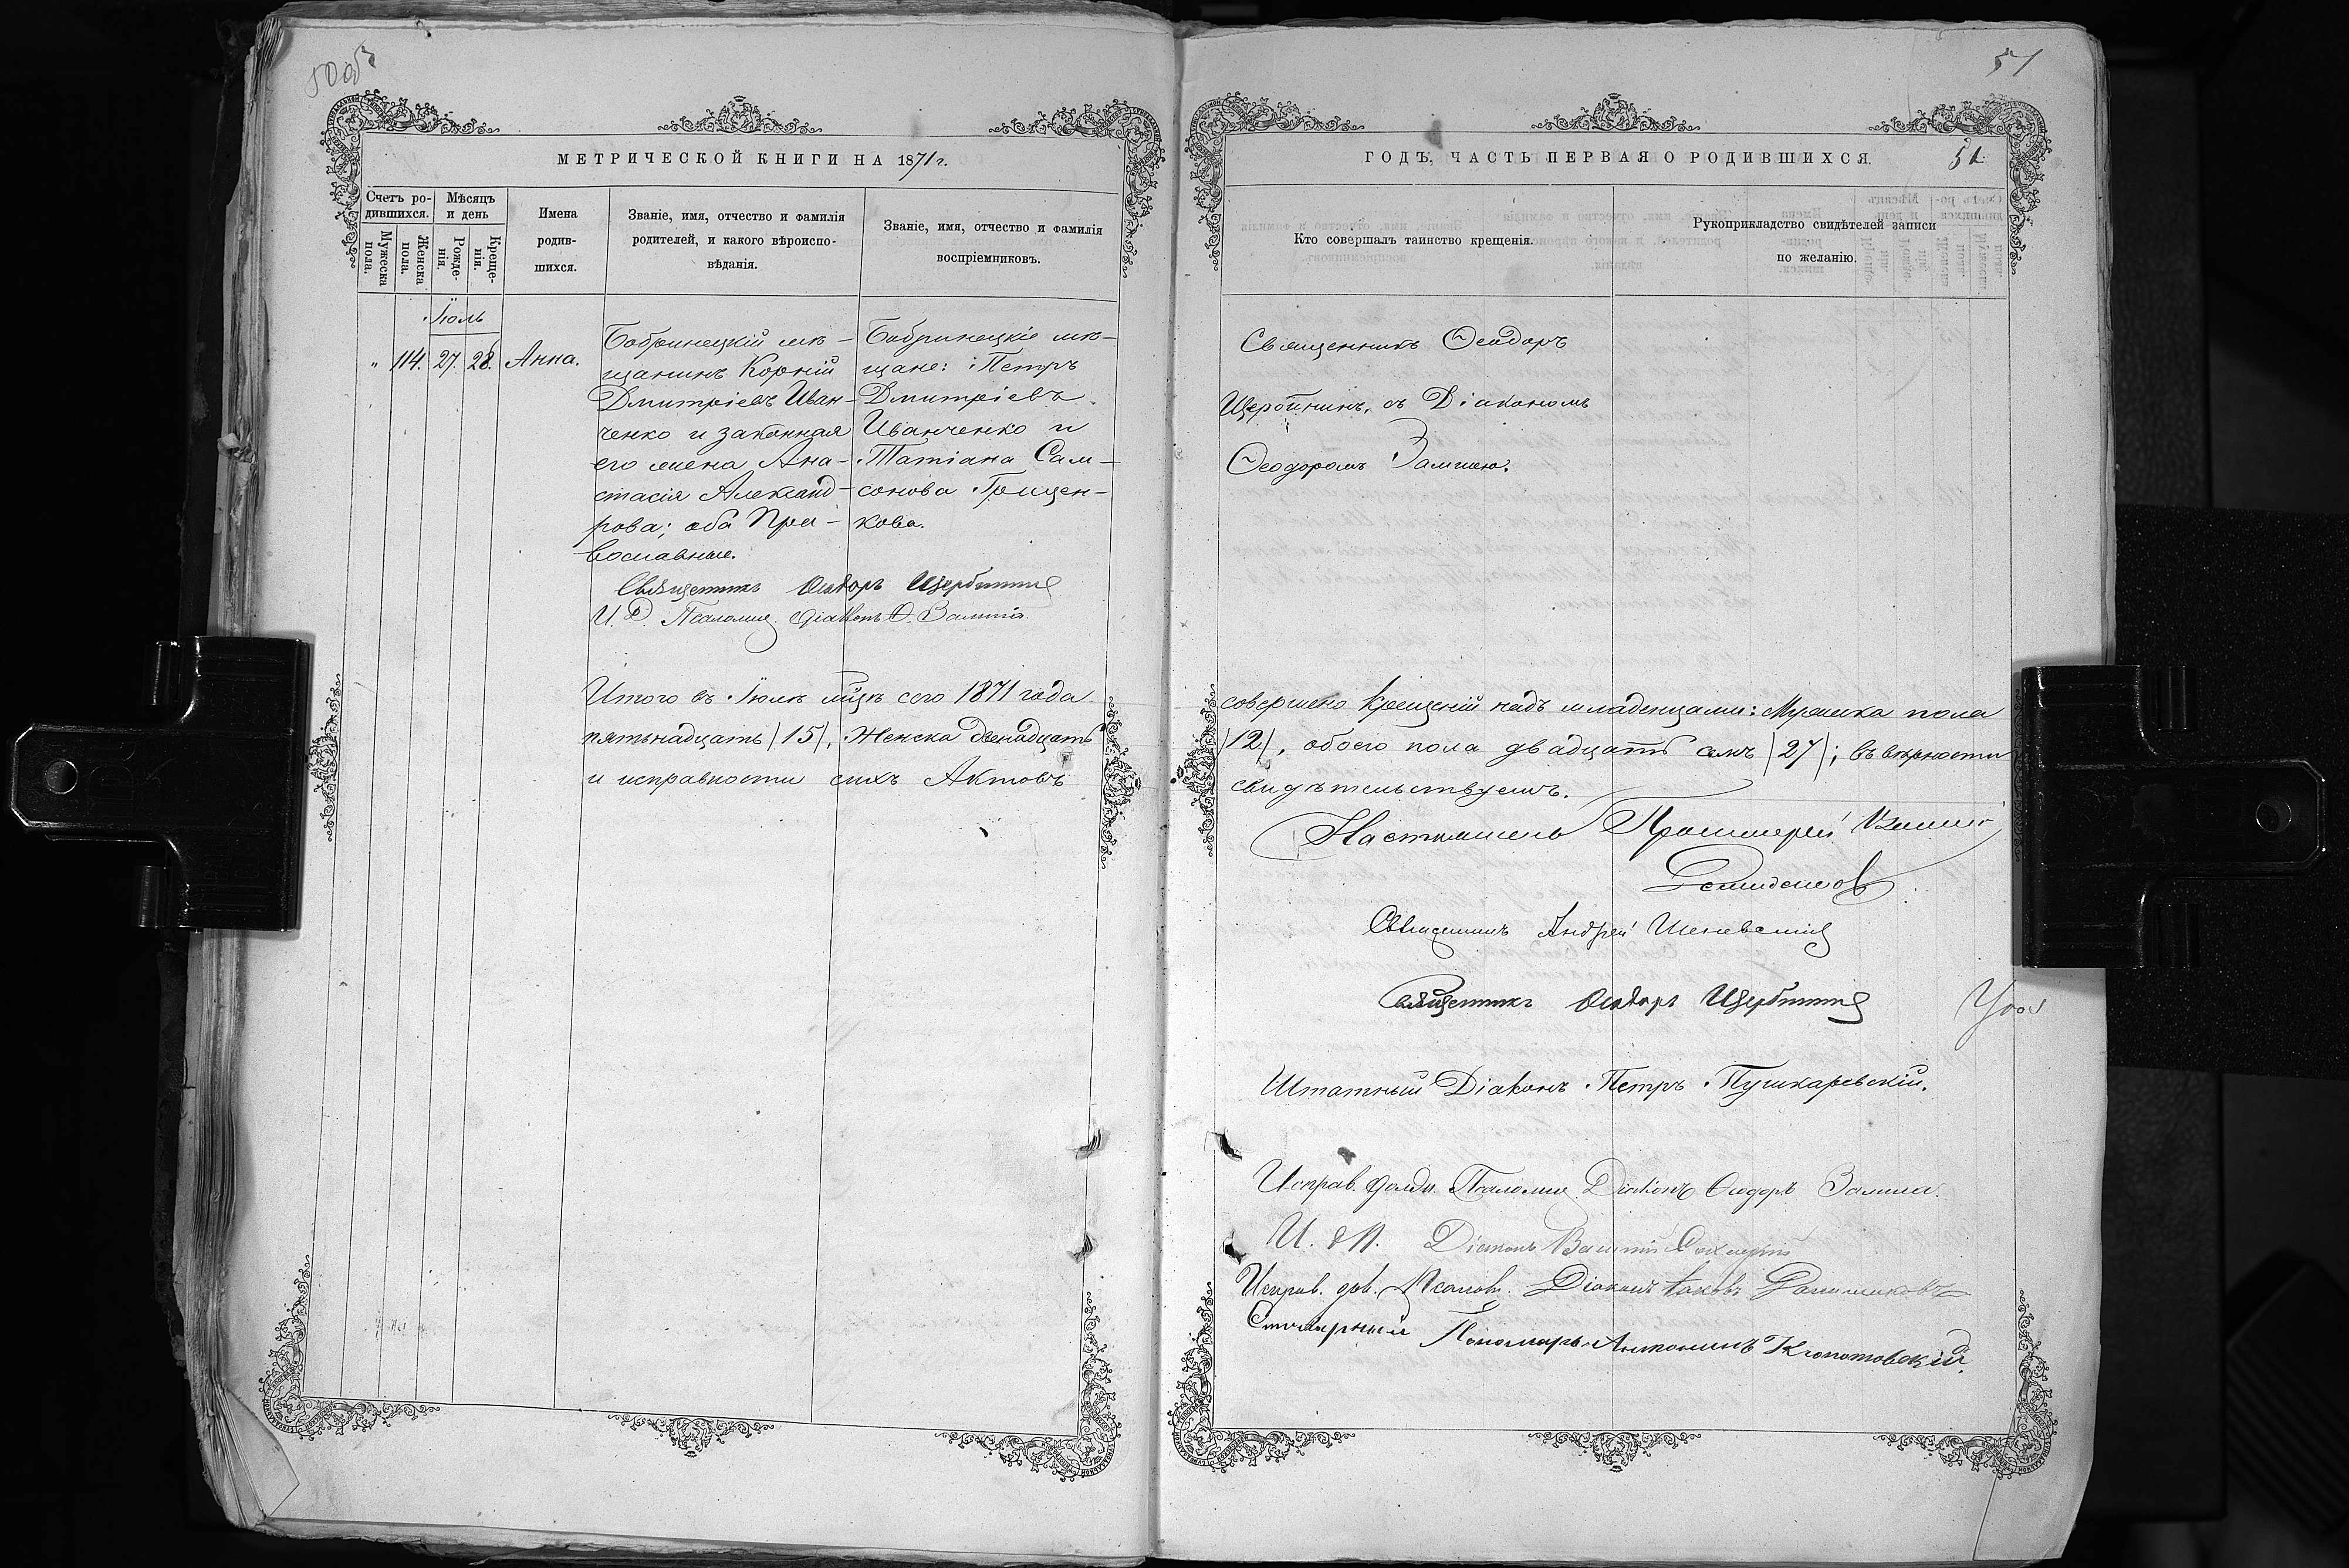 50 об
МЕТРИЧЕСКОЙ КНИГИ НА 1871 г.
Счетъ родившихся.
Мужеска пола.
Женска пола.
Мѣсяцъ и день
Рожденія.
Крещенія.
Имена родившихся.
Званіе, имя, отчество и фамилія
родителей, и какого вѣроиспо-
вѣданія.
Званіе, имя, отчество и фамилія
воспріемниковъ.
Іюль
" 114. 27. 28. Анна.
Бобринецкій мѣ-
щанинъ Корній
Дмитріевъ Иван-
ченко и законная
его жена Ана-
стасія Александ-
рова; оба Пра-
вославные.
Бобринецкіе мѣ-
щане: Петръ
Дмитріевъ
Иванченко и
Татіана Сам-
сонова Грицен-
кова.
Священникъ Ѳеодоръ
И. Д. Псаломщ. Діаконъ Ѳ.
Итого въ Іюлѣ мцѣ сего 1871 года
пятьнадцать /15/, Женска двенадцать
и исправности сихъ Актовъ
51
ГОДЪ, ЧАСТЬ ПЕРВАЯ О РОДИВШИХСЯ.
51.
Кто совершалъ таинство крещенія.
Рукоприкладство свидѣтелей записи
по желанію.
Священникъ Ѳеодоръ
съ Діакономъ
Ѳеодоромъ
совершено крещеній надъ младенцами: Мужеска пола
/12/, обоего пола двадцать семь /27/; въ вѣрности
свидѣтельствуемъ.
Настоятель Протоіерей
Священникъ Андрей
Священникъ Ѳеодоръ
Штатный Діаконъ Петръ Пушкаревскій.
Исправ. должн. Псаломщ. Діаконъ Ѳеодоръ
И. д. П. Діаконъ Василій
Исправ. дол. Псалом. Діаконъ Іаковъ
Пономарь Антонинъ Клопотовскій.